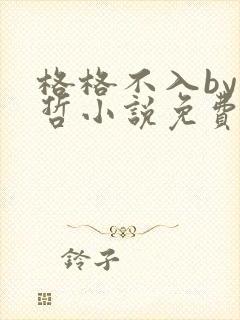 格格不入by
哲小說免費
鈴子